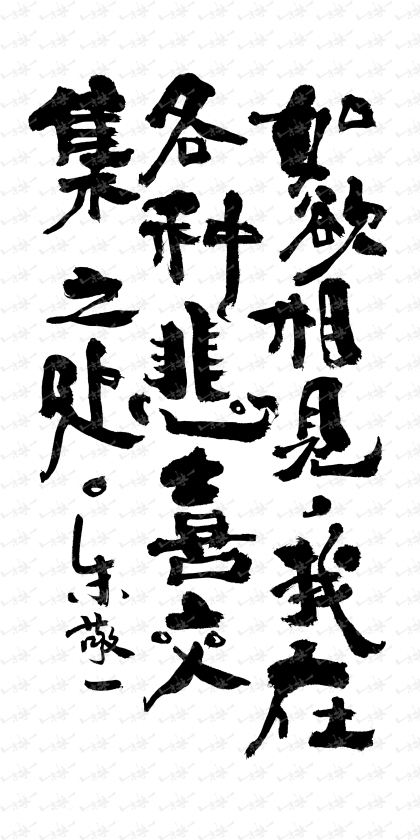 如欲相见,我在
各种悲喜交
集之处。朱敬一